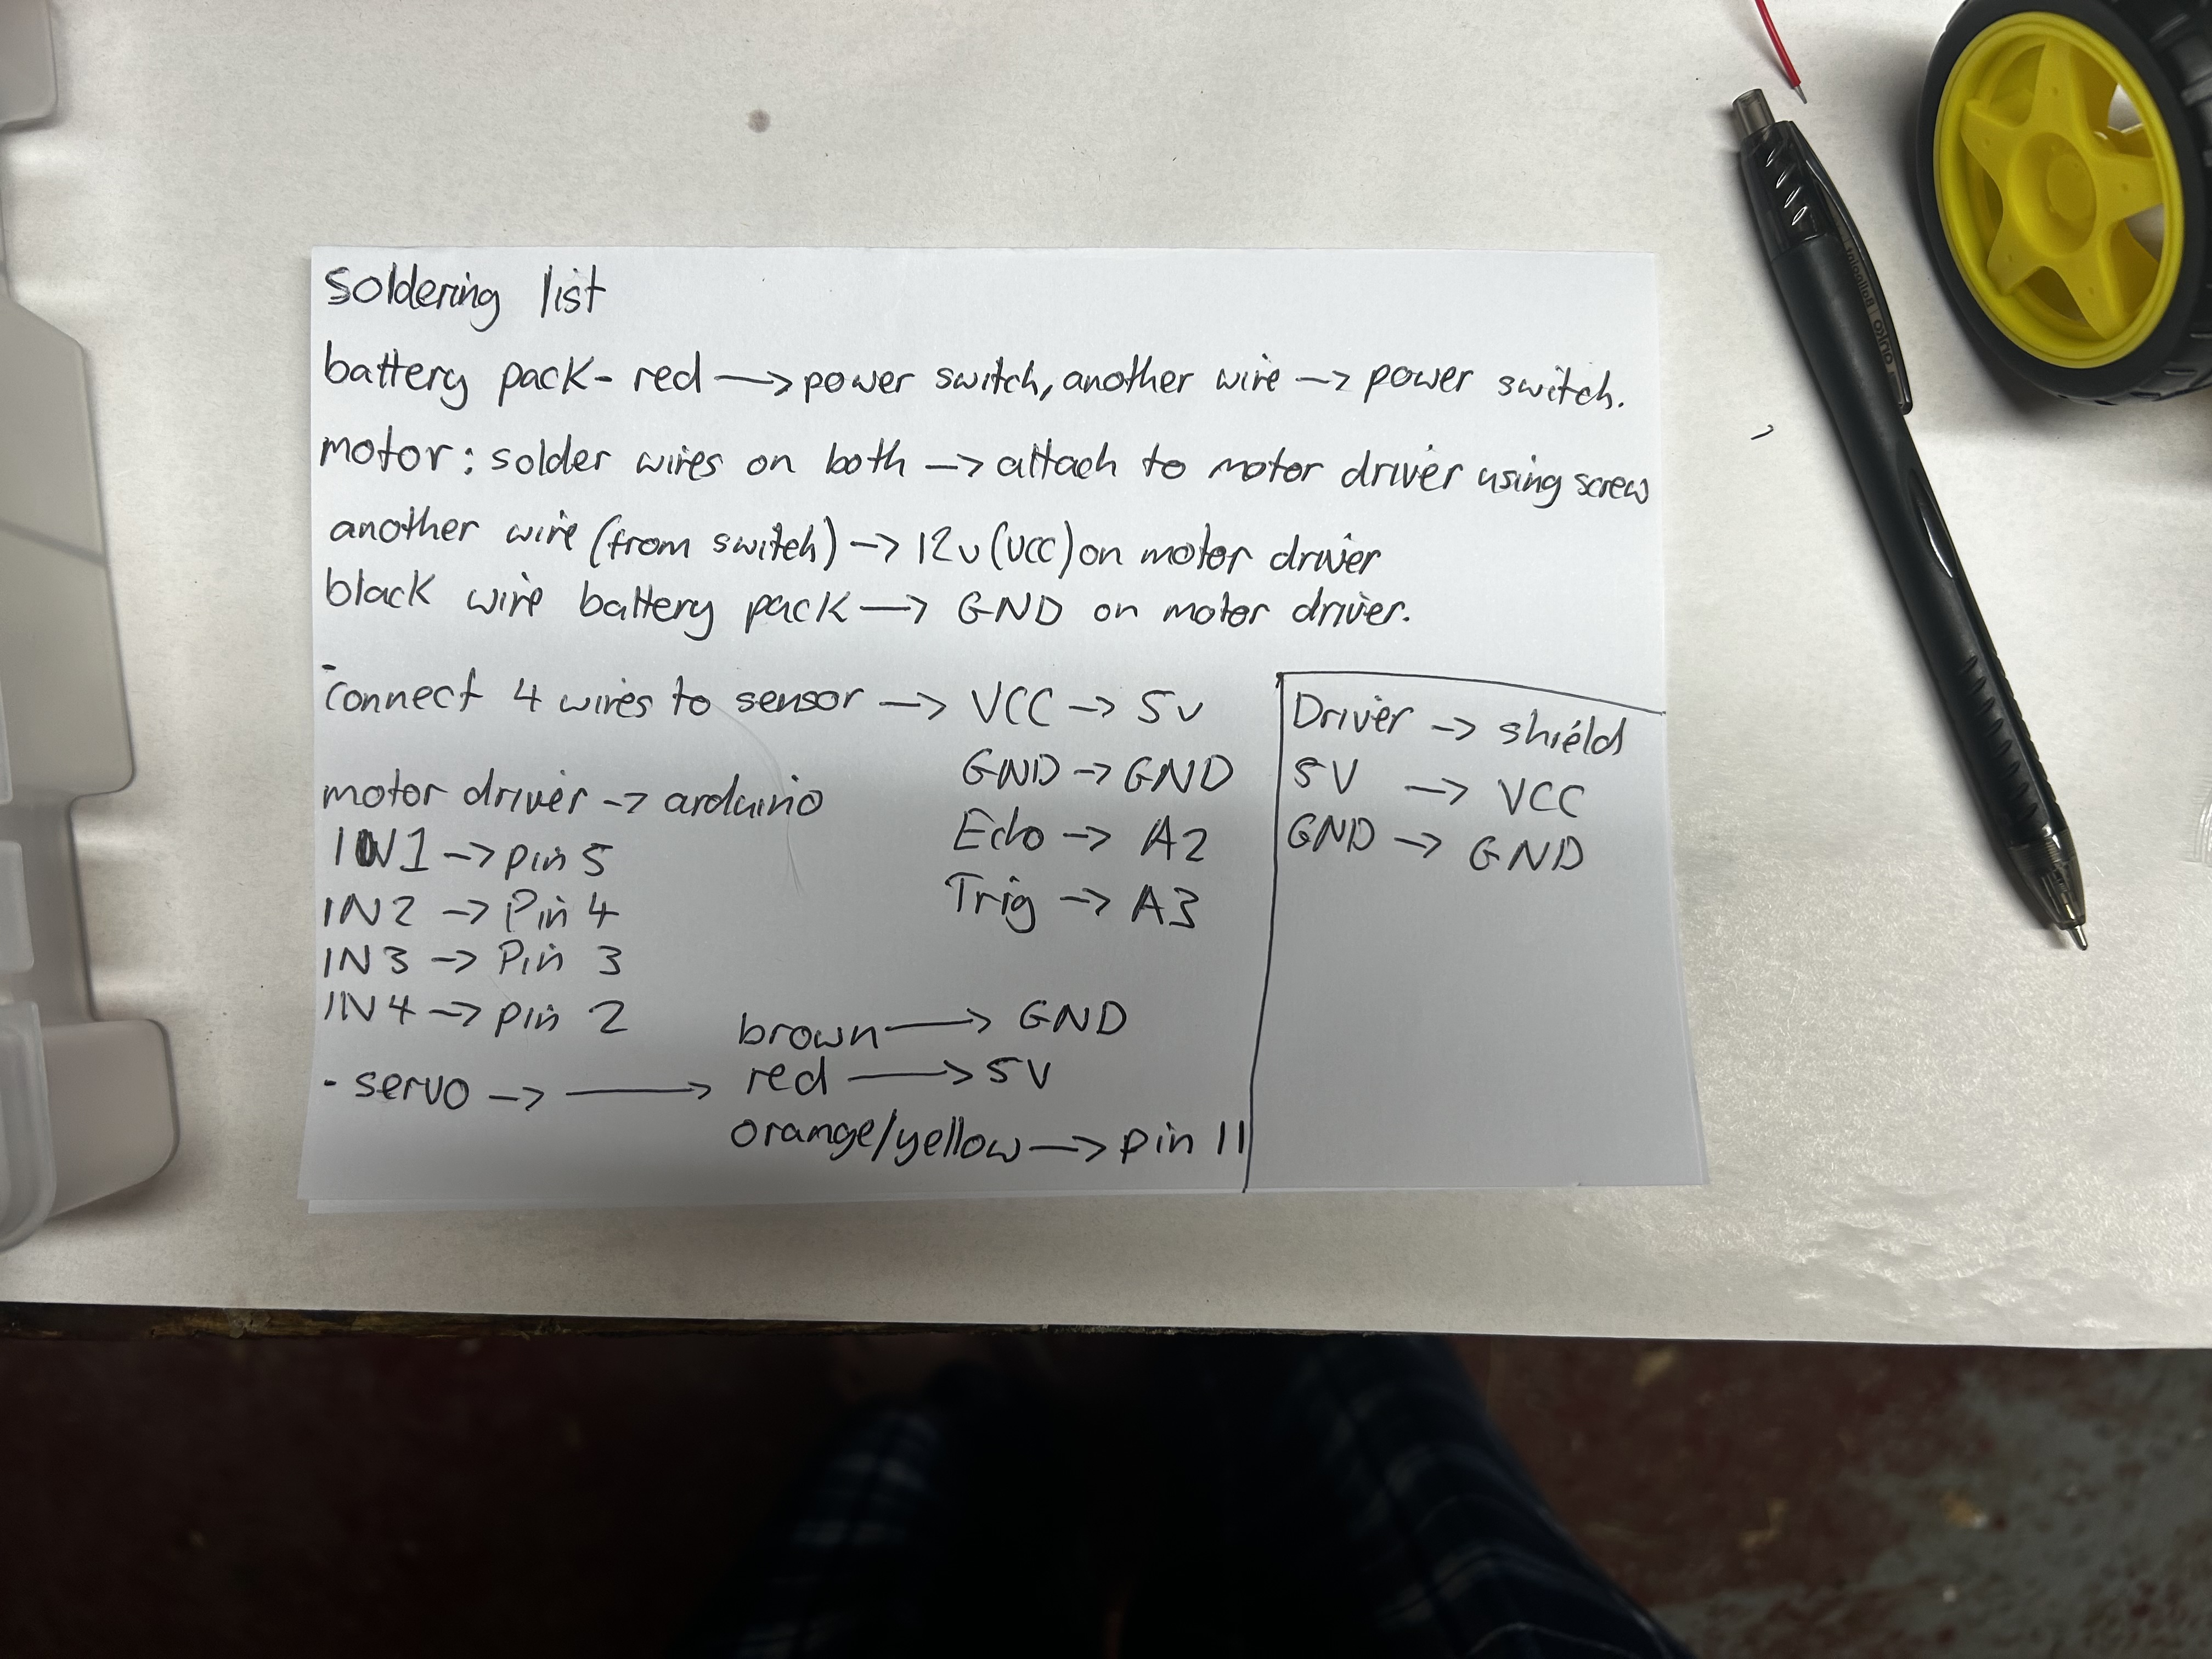 soldering list
battery pack - red → power switch, another wire → power switch.
motor: solder wires on both → attach to motor driver using screw
another wire (from switch) → 12v (VCC) on motor driver
black wire battery pack → GND on motor driver.
Connect 4 wires to sensor → VCC → 5v
GND → GND
Echo → A2
Trig → A3
motor driver → arduino
IN1 → pin 5
IN2 → Pin 4
IN3 → Pin 3
IN4 → pin 2
- servo → → brown → GND
red → 5V
orange/yellow → pin 11
Driver → shield
5V → VCC
GND → GND